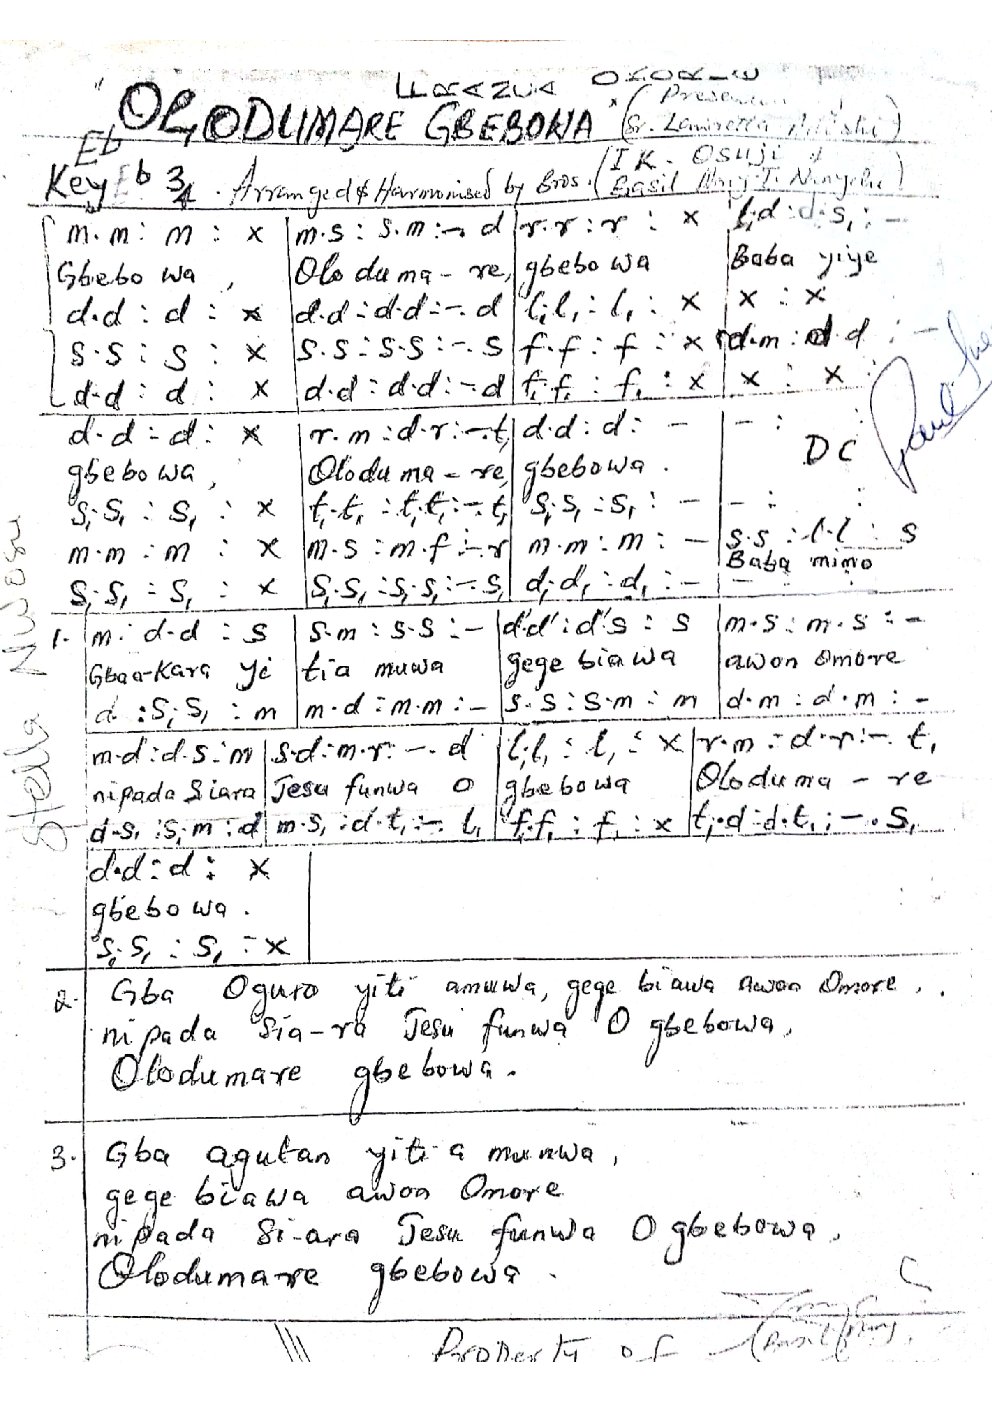 OLODUMARE GBEBOWA
Eb
Key Eb 3/4. Arranged & Harmonised by Bros. (I K. Osuji &
m.m : m : x | m.s : s.m :-. d | r.r : r : x | l,.d : d.s, : -
Gbebo wa, Olo du ma - re, gbebo wa Baba yiye
d.d : d : x | d.d : d.d :-. d | l,.l, : l, : x | x : x
s.s : s : x | s.s : s.s :-. s | f.f : f : x | d.m : d.d : -
d.d : d : x | d.d : d.d :-. d | f,.f, : f, : x | x : x :
d.d : d : x | r.m : d.r :-. t, | d.d : d : - | - : :
gbebo wa, Oloduma - re, gbebowa. DC
s,.s, : s, : x | t,.t, : t,.t, :-. t, | s,.s, : s, : - | - : :
m.m : m : x | m.s : m.f :-. r | m.m : m : - | s.s : l.l : s
Baba mimo
s,.s, : s, : x | s,.s, : s,.s, :-. s, | d,.d, : d, : - | -
1. m : d.d : s | s.m : s.s : - | d'.d' : d'.s : s | m.s : m.s : -
Gbaa-Kara yi tia muwa gege biawa awon Omore
d : s,.s, : m | m.d : m.m : - | s.s : s.m : m | d.m : d.m : -
m.d : d.s : m | s.d : m.r :-. d | l,.l, : l, : x | r.m : d.r :-. t,
nipada Siara Jesu funwa O gbebowa Oloduma - re
d.s, : s,.m : d | m.s, : d.t, :-. l, | f,.f, : f, : x | t,.d : d.t, :-. s,
d.d : d : x
gbebo wa.
s,.s, : s, : x
2. Gba Oguro yiti amuwa, gege biawa awon Omore.
nipada Sia-ra Jesu funwa O gbebowa,
Olodumare gbebowa.
3. Gba agutan yiti a munwa,
gege biawa awon Omore
nipada Si-ara Jesu funwa O gbebowa,
Olodumare gbebowa.
Property of
Stella Nwosu